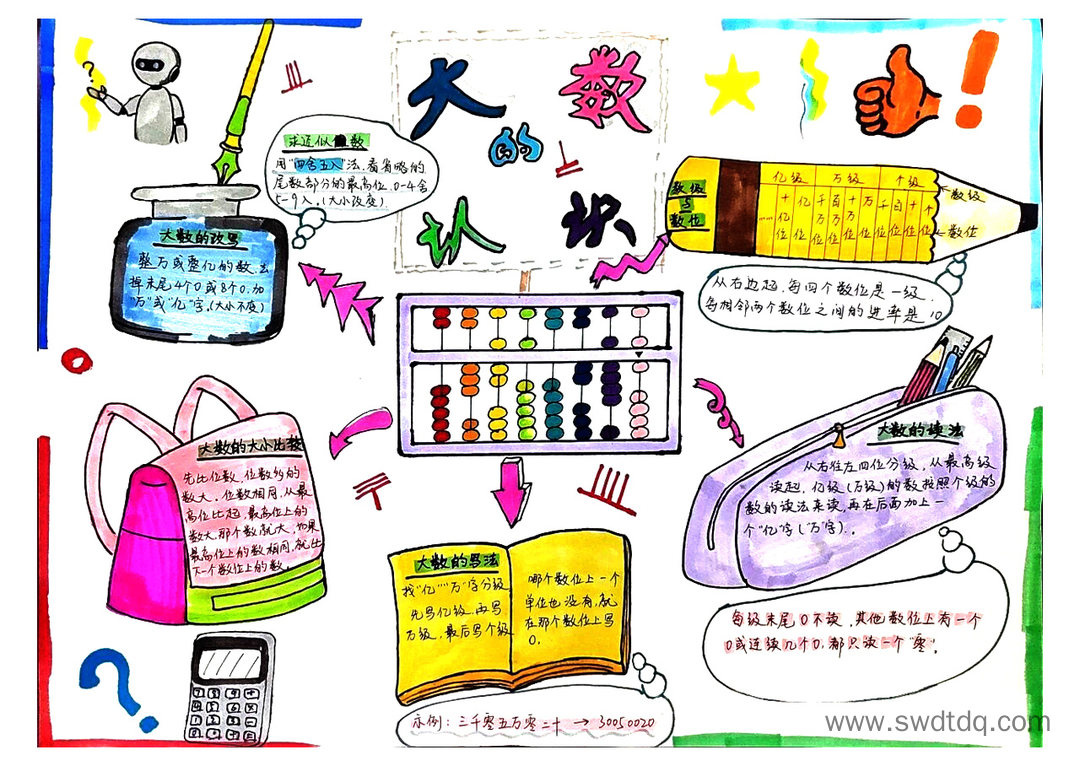 大数
的
认识
求近似数
用"四舍五入"法,看省略的
尾数部分的最高位,0-4舍
5-9入。(大小改变)
大数的改写
整万或整亿的数,去
掉末尾4个0或8个0,加
"万"或"亿"字。(大小不变)
数级
与
数位
亿级 万级 个级
……十亿位 亿位 千万位 百万位 十万位 万位 千位 百位 十位 个位
数级
数位
从右边起,每四个数位是一级,
每相邻两个数位之间的进率是10
大数的大小比较
先比位数,位数多的
数大,位数相同,从最
高位比起,最高位上的
数大,那个数就大,如果
最高位上的数相同,就比
下一个数位上的数。
大数的读法
从右往左四位分级,从最高级
读起,亿级(万级)的数按照个级的
数的读法来读,再在后面加上一
个"亿"字("万"字)。
每级末尾0不读,其他数位上有一个
0或连续几个0,都只读一个"零"。
大数的写法
找"亿""万"字分级
先写亿级,再写
万级,最后写个级
哪个数位上一个
单位也没有,就
在那个数位上写
0。
示例:三千零五万零二十 → 30050020
www.swdtdq.com